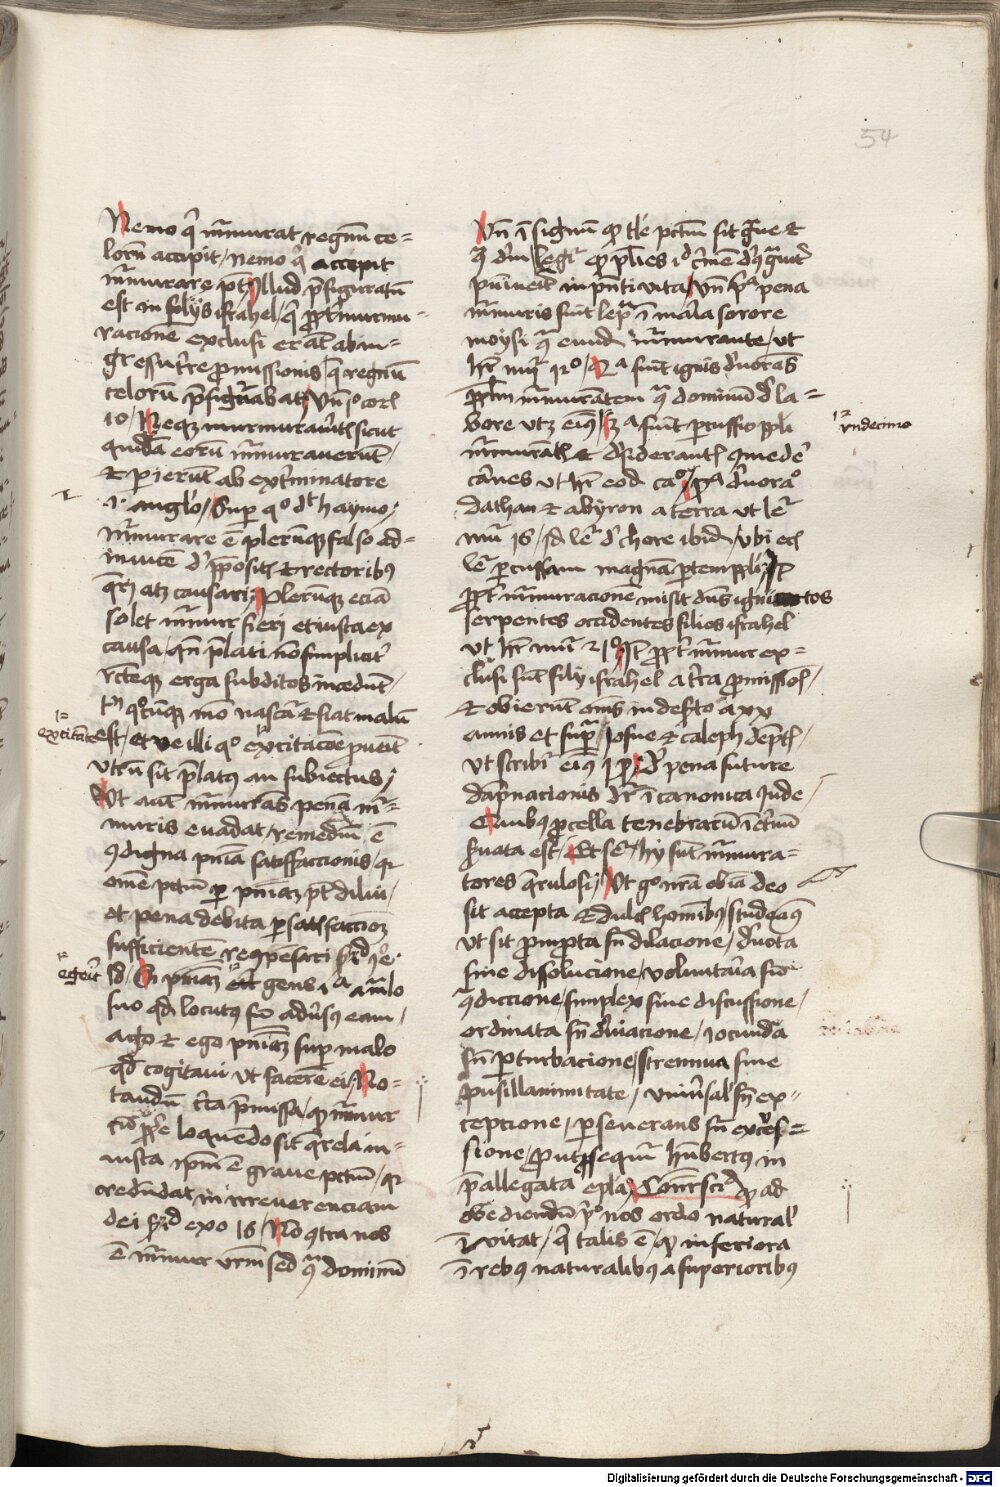 54
Nemo qi murmurat regnum ce=
lorum accipit / nemo qi accepit
murmurare pot / Illud prefiguratum
est in filijs israhel / qi propter murmu-
racionem exclusi erant ab in-
gressu terre promissionis / que regnum
celorum prefigurabat / Unde p° cor
10 / Neque murmuraveritis sicut
quidam eorum murmuraverunt /
et perierunt ab exterminatore
.i. anglo / Super quo dicit haymo /
murmurare est plerumque falso ad=
invicem de prepositis et rectoribus
queri atque causari / Plerumque eciam
solet murmur fieri et iusta ex
causa / quando prelati non simpliciter
recteque erga subditos incedunt /
tamen quocumque modo nascatur et fiat malum
est / et ve illi quo excitacione provenit
utrum sit prelatus an subiectus /
Ut autem murmurans penam mur=
muris evadat / remedium est
condigna penitencia satisfaccionis / quia
omne peccatum per penitenciam potest dilui /
et pena debita per satisfaccionem
sufficientem recompensari secundum Jere
18 / Si penitenciam gens illa a malo
suo quod locutus sum adversus eam /
agam et ego penitenciam super malo
quod cogitavi ut facerem ei / No=
tandum circa premissa / quod murmur
proprie loquendo sit querela in-
iusta ipsum est grave peccatum / quia
redundat in irreverenciam
dei secundum exo 16 / No contra nos
est murmur vestrum sed contra dominum
excitacione
egerit
Unde in signum quod tale peccatum sit grave et
contra divinam legem quod plures id crimen graviter
punivit in presenti vita / Unde prima pena
murmuris fuit lepra in maria sorore
moysi contra eundem murmurante / ut
habetur numeri 12° / 2a fuit ignis devorans
populum murmurantem contra dominum de la=
bore utz eiusdem / 3a fuit percussio populi
murmurantis et desiderantis comedere
carnes ut habetur eodem ca° / 4a devoracio
dathan et abyron a terra ut legitur
numeri 16 / Idem legitur de chore ibidem / ubi eciam
legitur percussam magnam partem populi / Item
propter murmuracionem misit dominus ignitos
serpentes occidentes filios israhel
ut habetur numeri 21° / Item propter murmur ex=
clusi sunt filij israhel a terra promissionis /
et obierunt omnes in deserto a xx
annis et supra / Josue et caleph demptis /
ut scribitur eiusdem 14 / De pena future
dampnacionis dicitur in canonica Jude /
Quibus procella tenebrarum in eternum
servata est / Et sequitur / hij sunt murmura=
tores querulosi / Ut ergo nostra obediencia deo
sit accepta et dulcis hominibus / studeamus
ut sit prompta sine dilacione / devota
sine dissolucione / voluntaria sine
contradiccione / simplex sine discussione /
ordinata sine deviacione / iocunda
sine perturbacione / strennua sine
pusillanimitate / universalis sine ex-
cepcione / perseverans sine exces=
sione / prout prosequitur humbertus in
preallegata epistola / Considera quod ad
obediendum primo nos ordo naturalis
invitat / qui talis est / quod inferiora
in rebus naturalibus a superioribus
undecimo
Digitalisierung gefördert durch die Deutsche Forschungsgemeinschaft - DFG